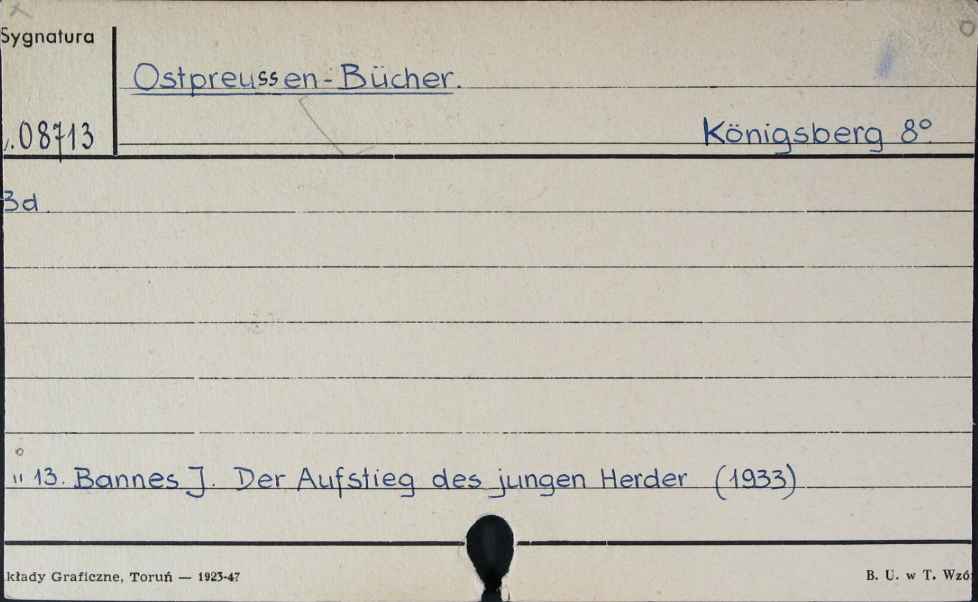 Sygnatura
Ostpreussen-Bücher.
08713
Königsberg 8°
Bd.
" 13. Bannes J. Der Aufstieg des jungen Herder (1933)
kłady Graficzne, Toruń — 1923-47
B. U. w T. Wzó